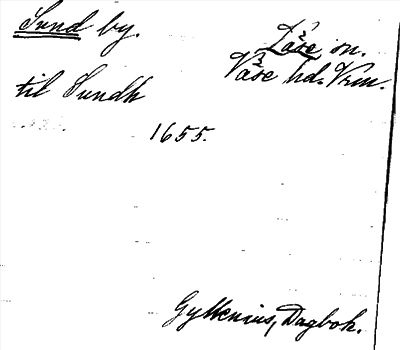 Sund by.
Våse sn.
Våse hd. Vrm.
til Sundh
1655.
Gyllenius, Dagbok.